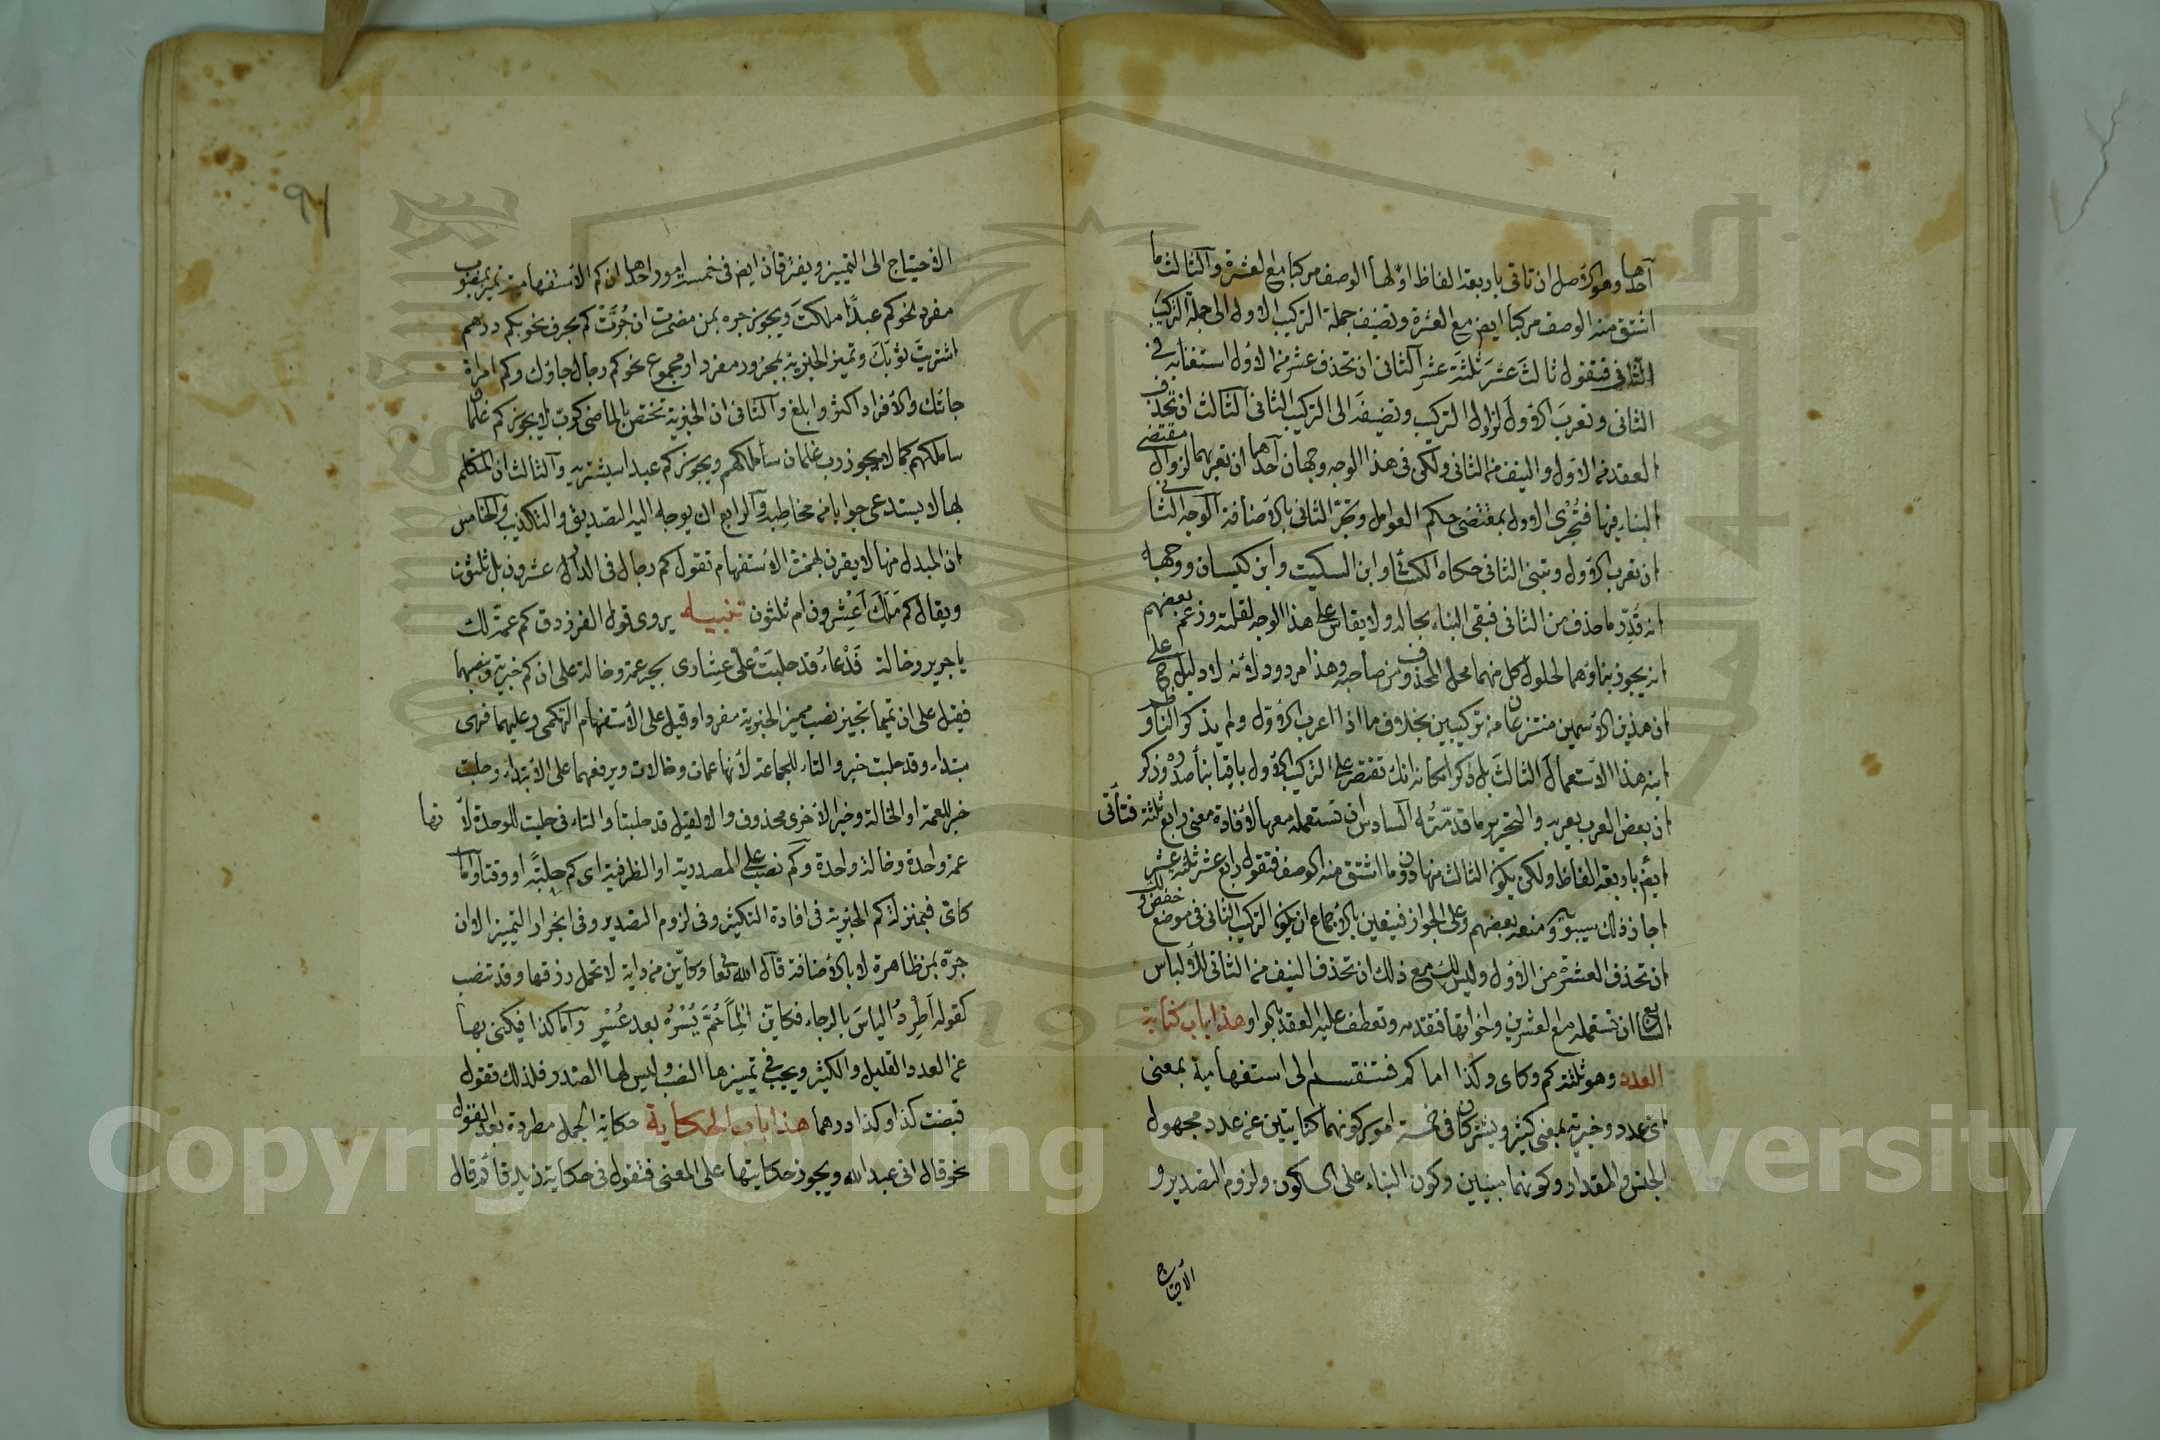 احدها وهو الاصل ان تاتى باربعة الفاظ اولها الوصف مركبا مع العشرة والثالث ما
اشتق منه الوصف مركبا ايض مع العشرة وتضيف جملة التركيب الاول الى جملة التركيب
الثانى فتقول ثالثَ عشرَ ثلثةَ عشرَ الثانى ان تحذف عشر من الاول استغنأ به فى
الثانى وتعربَ الاولَ لزوال التركيب وتضيفَه الى التركيب الثانى الثالث ان تحذف
العقد من الاول والنيف من الثانى ولك فى هذا الوجه وجهان احدهما ان تعربهما لزوال مقتضى
البناء فيهما فتُجْرى الاول بمقتضى حكم العوامل وتجرّ الثانى بالاضافة الوجه الثانى
ان تعرب الاول وتبنى الثانى حكاه الكسائى وابن السكيت وابن كيسان ووجهه
انه قُدّر ما حذف من الثانى فبقى البناء بحاله ولا يقاس على هذا الوجه لقلته وزعم بعضهم
انه يجوز بناؤهما لحلول كل منهما محل المحذوف من صاحبه وهذا مردود لانه لا دليل ح على
ان هذين الاسمين منتزعان من تركيبين بخلاف ما اذا اعرب الاول ولم يذكر الناظم و
ابنه هذا الاستعمال الثالثَ بل ذكرا مكانه انك تقتصر على التركيب الاول باقيا بنأ صدره وذكر
ان بعض العرب يعربه والتحرير ما قدمتُه السادس ان تستعمله معها لافادة معنى رابع ثلثة فتأتى
ايض باربعة الفاظ ولكن يكون الثالث منها دون ما اشتق منه الوصف فتقول رابع عشر ثلثة عشر
اجاز ذلك سيبويه ومنعه بعضهم وعلى الجواز فيتعين بالاجماع ان يكون التركيب الثانى فى موضع خفض ولك
ان تحذف العشرة من الاول وليس لك مع ذلك ان تحذف النيف من الثانى للالباس
السابع ان تستعمله مع العشرين واخواتها فتقدمه وتعطف عليه العقد بالواو هذا باب كناية
العدد وهو ثلثة كم وكاى وكذا اما كم فتنقسم الى استفهامية بمعنى
اى عدد وخبرية بمعنى كثير ويشتركان فى خمسة امور كونهما كنايتين عن عدد مجهول
الجنس والمقدار وكونهما مبنيين وكون البناء على السكون ولزوم التصدير و
الاحتياج
٩١
الاحتياج الى التمييز ويفترقان ايض فى خمسة امور احدها ان كم الاستفهامية تميز بمنصوب
مفرد نحو كم عبدًا ملكتَ ويجوز جره بمن مضمرة ان جُرَّتْ كم بحرف نحو بكم درهم
اشتريتَ ثوبَكَ وتميز الخبرية بمجرور مفرد او مجموع نحو كم رجال جاؤك وكم امراة
جاتك والافراد اكثر وابلغ والثانى ان الخبرية تختص بالماضى كرب لا يجوز كم غلمان
ساملكهم كما لا يجوز رب غلمان سأملكهم ويجوز كم عبدا سيشتريه والثالث ان المتكلم
بها لا يستدعى جوابا من مخاطبه والرابع انه يوجه اليه التصديق والتكذيب والخامس
ان المبدل منها لا يقرن بهمزة الاستفهام تقول كم رجال فى الدار عشرون بل ثلثون
ويقال كم مَالَكَ اَعِشْرون ام ثلثون تنبيه يروى قول الفرزدق كم عمة لك
يا جرير وخالة فَدْعاءُ قد حلبتْ علىّ عِشارى بجر عمة وخالة على ان كم خبرية وبنصبهما
فقيل على ان تميما تجيز نصب مميز الخبرية مفردا وقيل على الاستفهام التهكمى وعليهما فهى
مبتداء وقد حلبت خبر والتاء للجماعة لأنها عمات وخالات وبرفعهما على الابتداء وحلبت
خبر للعمة او الخالة وخبر الاخرى محذوف والا لقيل قد حلبتا والتاء فى حلبت للوحدة لأنها
عمة واحدة وخالة واحدة وكم نصب على المصدرية او الظرفية اى كم حلبَةً او وقتا واما
كاى فبمنزلة كم الخبرية فى افادة التكثير وفى لزوم التصدير وفى انجرار التمييز الا ان
جرّه بمن ظاهرة لا بالاضافة قال الله تعا وكايّن من دابة لا تحمل رزقها وقد تنصب
كقوله اُطْرِدُ الياسَ بالرجاء فكاين الِمًا حُمَّ يُسْرُهُ بعد عُسْرِ واما كذا فيكنى بها
عن العدد القليل والكثير ويجب فى تمييزها النصب وليس لها الصدر فلذلك تقول
قبضت كذا وكذا درهما هذا باب الحكاية حكاية الجمل مطردة بعد القول
نحو قال انى عبد الله ويجوز حكايتها على المعنى فتقول فى حكاية زيد قائم قال
Copyright © King Saud University